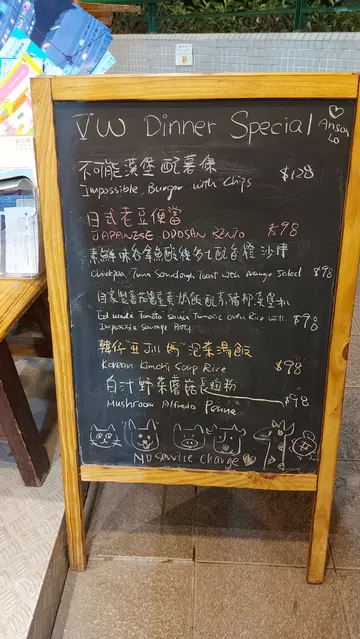 VW Dinner Special
Ansah
Lo
不可能漢堡配薯條
$128
Impossible Burger with Chips
日式老豆便當
$98
JAPANESE ODOSAN BENTO
素鮮味吞拿魚酸種多士配香橙沙律
Chickpea Tuna Sourdough Toast with Orange Salad $98
自家製蕃茄薑黃奶飯配素豬柳漢堡扒
Tomato Tumeric with Rice with $98
Impossible Sausage Patty
韓仔"丑Jill媽"泡菜湯飯
$98
Korean Kimchi Soup Rice
白汁野菜蘑菇長通粉
$98
Mushroom Alfredo Penne
NO service charge